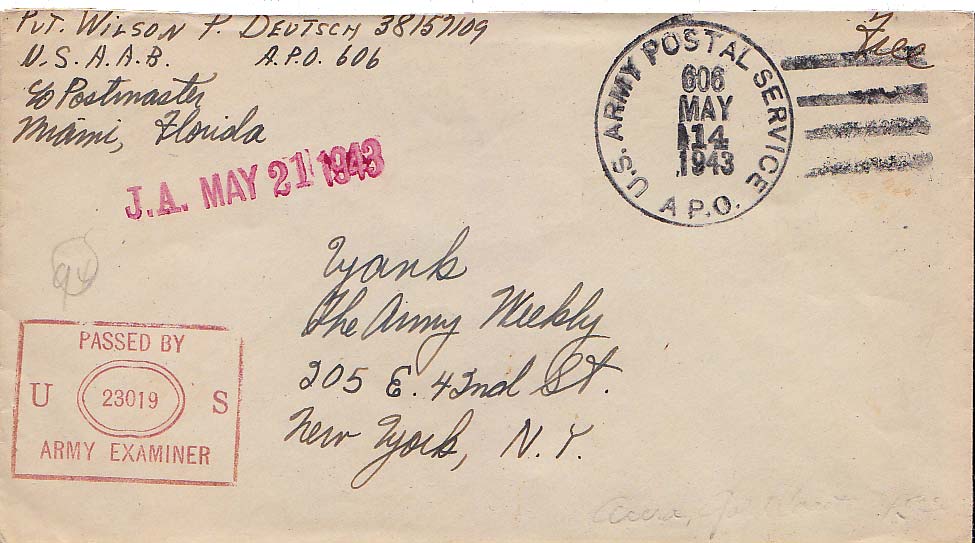 Pvt. WILSON P. DEUTSCH 38157109
U.S.A.A.B. A.P.O. 606
c/o Postmaster
Miami, Florida
Free
U.S. ARMY POSTAL SERVICE
606
MAY
14
1943
A.P.O.
J.A. MAY 21 1943
94
Yank
The Army Weekly
205 E. 42nd St.
New York, N.Y.
PASSED BY
U 23019 S
ARMY EXAMINER